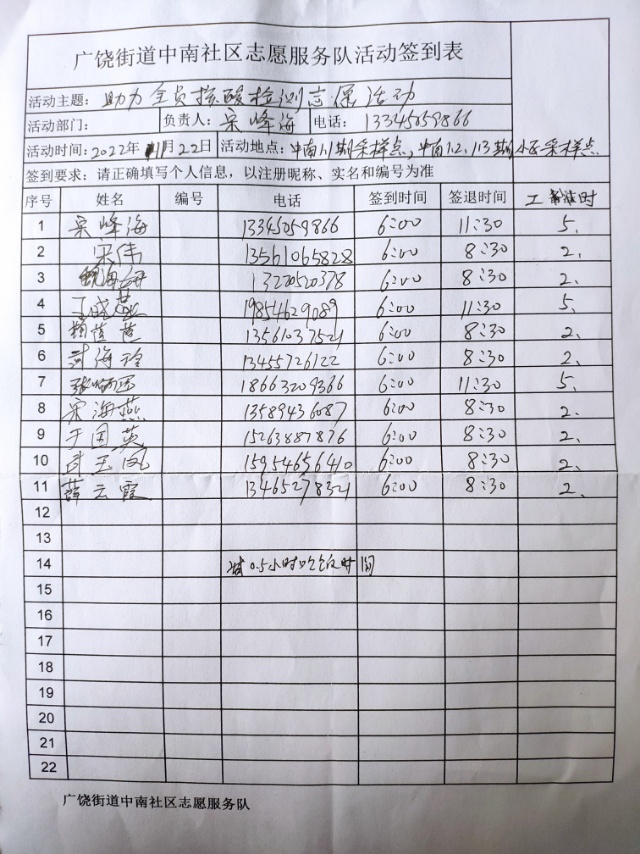 广饶街道中南社区志愿服务队活动签到表
活动主题：助力全员核酸检测志愿活动
活动部门： 负责人：宋峰海 电话：13345059866
活动时间：2022年11月22日 活动地点：中南1.1期采样点，中南1.2，1.3期小区采样点
签到要求：请正确填写个人信息，以注册昵称、实名和编号为准
序号 姓名 编号 电话 签到时间 签退时间 工时
1 宋峰海 13345059866 6:00 11:30 5.
2 宋伟 13561065828 6:00 8:30 2.
3 13220520378 6:00 8:30 2.
4 丁晓燕 19854629089 6:00 11:30 5.
5 13561037521 6:00 8:30 2.
6 海玲 13455726122 6:00 8:30 2.
7 18663209366 6:00 11:30 5.
8 宋海燕 13589436087 6:00 8:30 2.
9 于国英 15263887876 6:00 8:30 2.
10 玉凤 15954656410 6:00 8:30 2.
11 薛云霞 13465278321 6:00 8:30 2.
12
13
14 减0.5小时吃饭时间
15
16
17
18
19
20
21
22
广饶街道中南社区志愿服务队